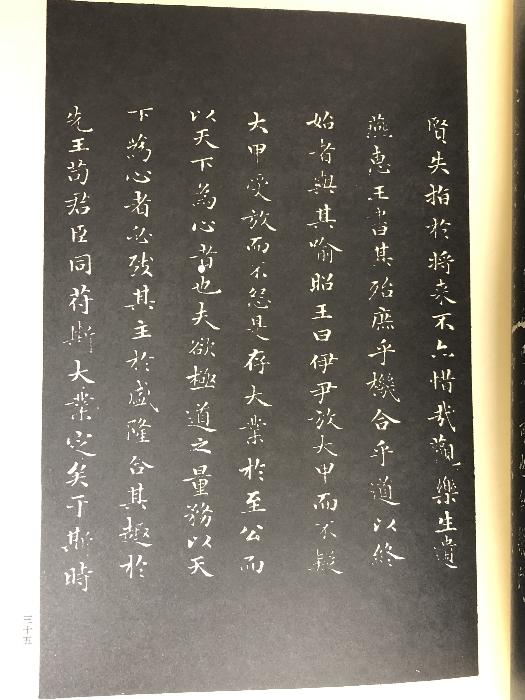 賢失指於將來不亦惜哉觀樂生遺
燕惠王書其殆庶乎機合乎道以終
始者與其喻昭王曰伊尹放大甲而不疑
大甲受放而不怨是存大業於至公而
以天下為心者也夫欲極道之量務以天
下為心者必致其主於盛隆合其趣於
先王苟君臣同符斯大業定矣于斯時
三十五